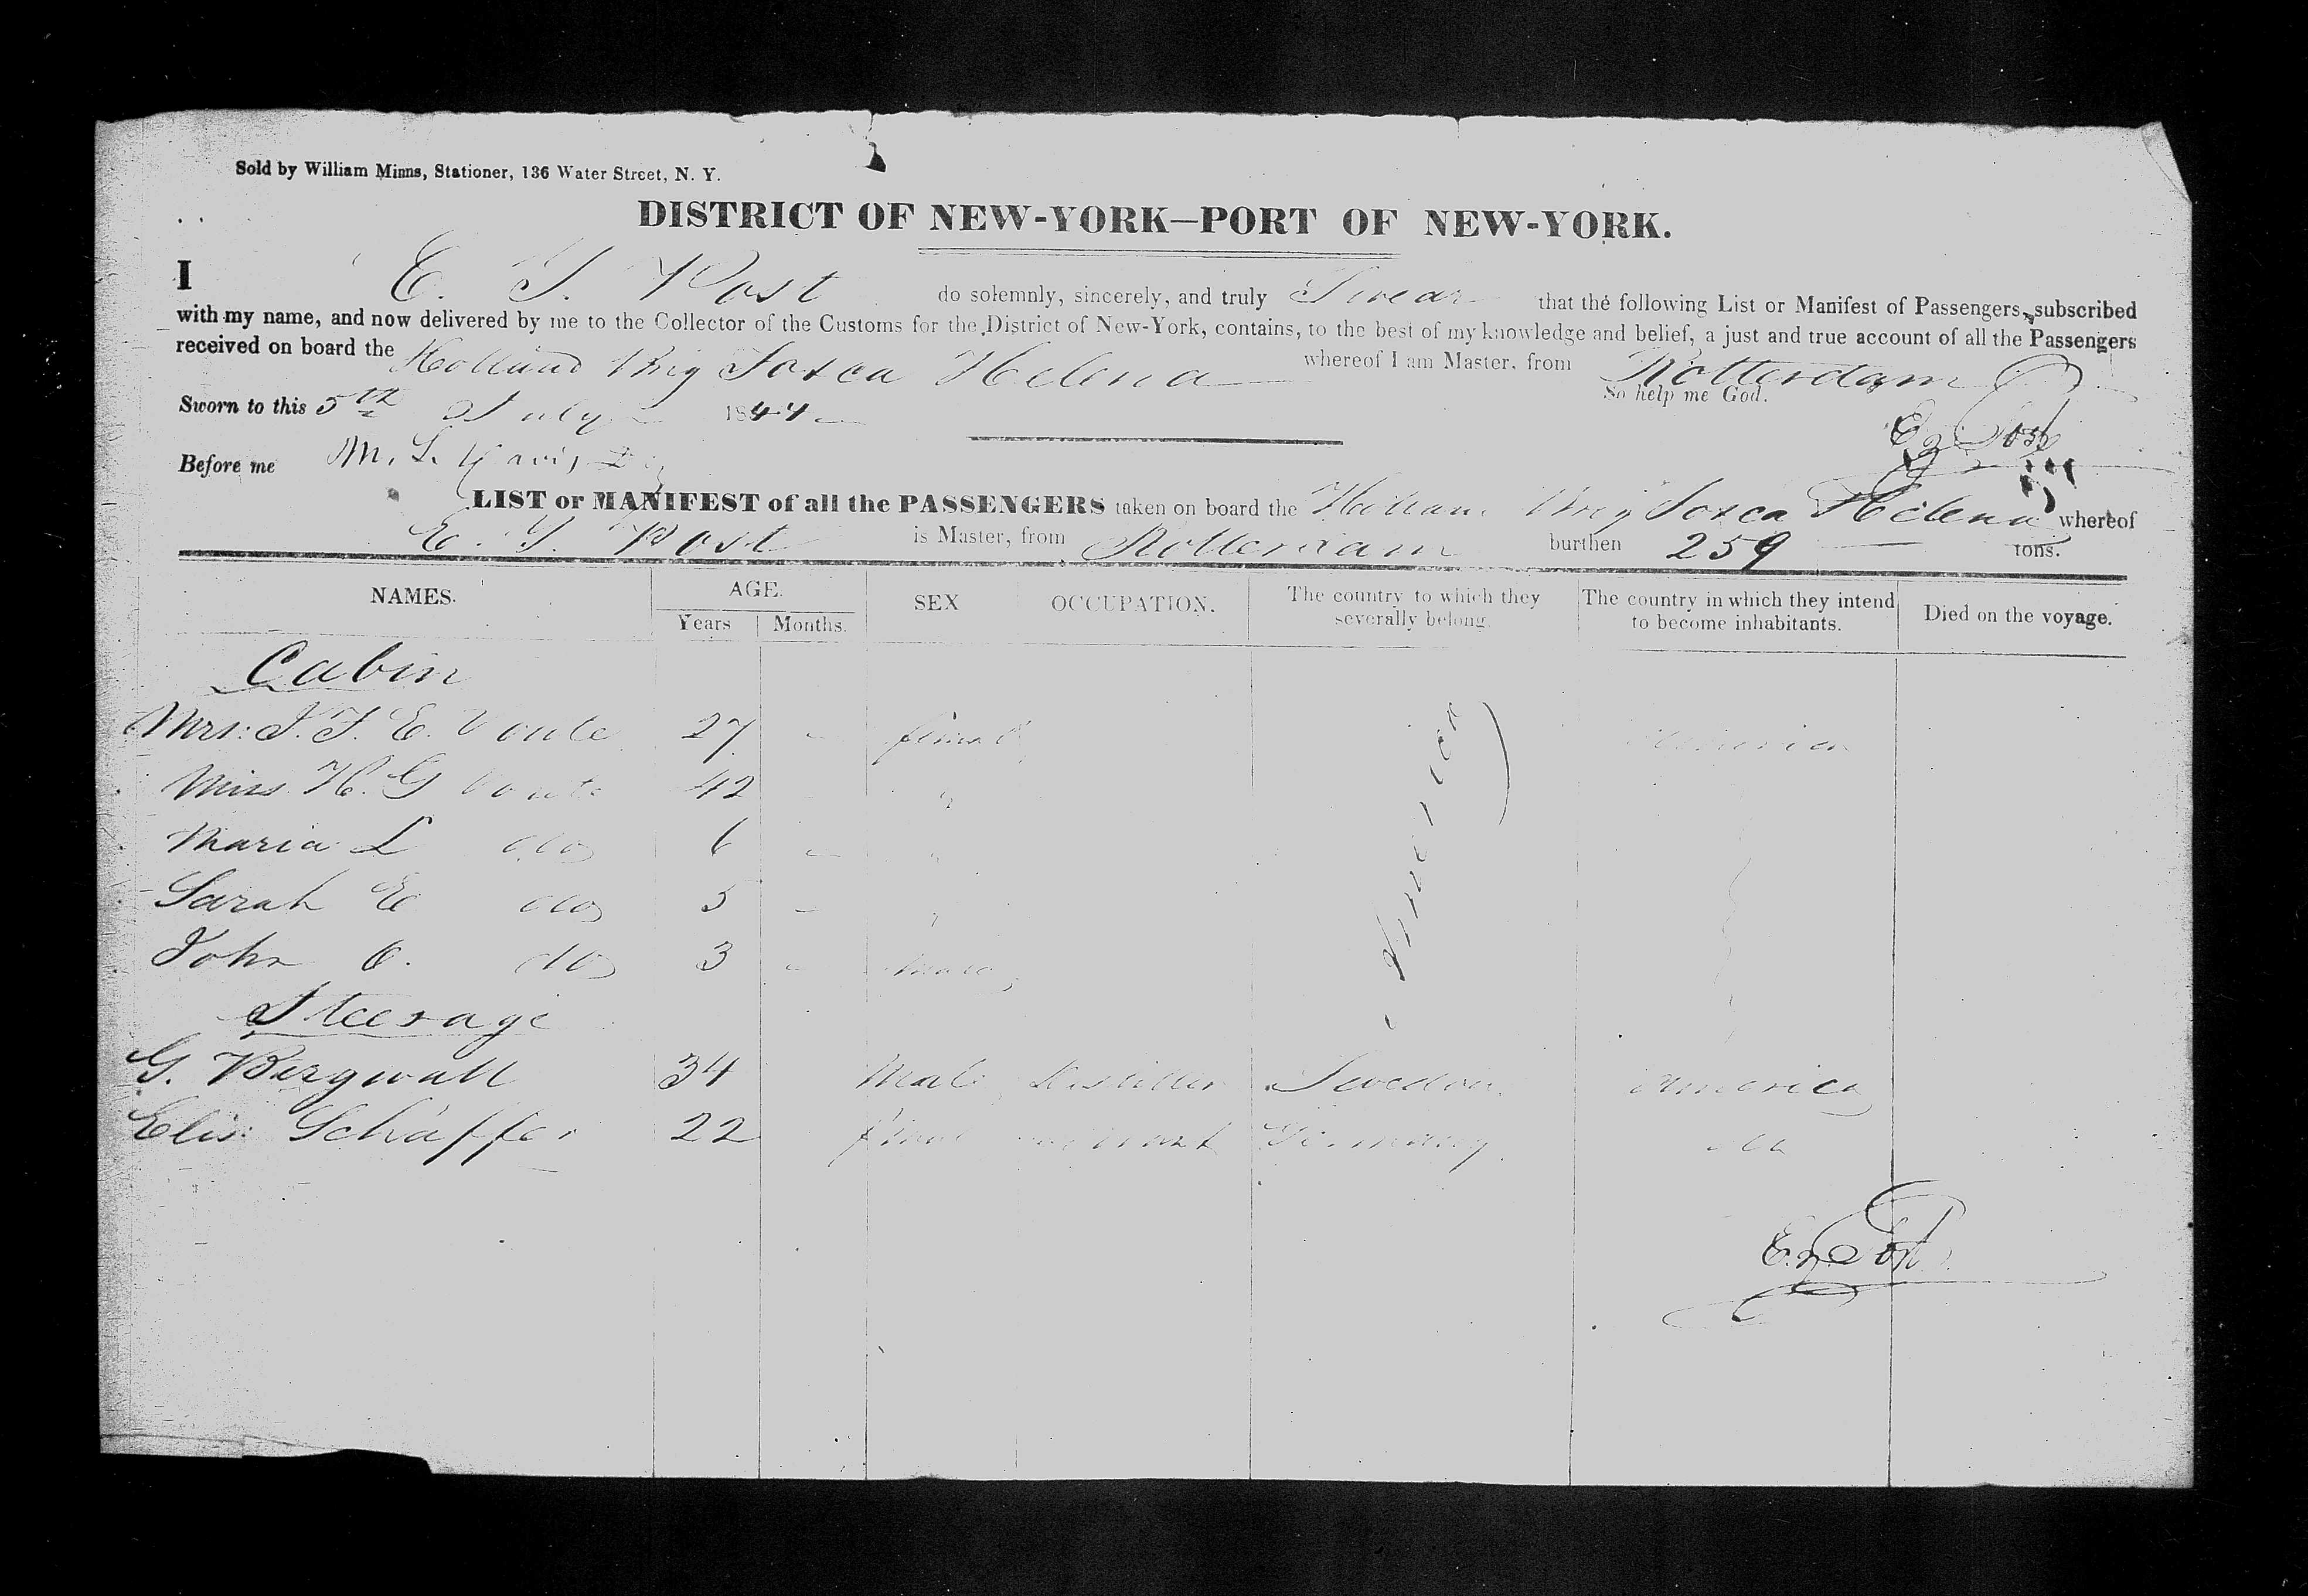 Sold by William Minns, Stationer, 136 Water Street, N. Y.
DISTRICT OF NEW-YORK—PORT OF NEW-YORK.
I E. J. Post do solemnly, sincerely, and truly Swear that the following List or Manifest of Passengers, subscribed
with my name, and now delivered by me to the Collector of the Customs for the District of New-York, contains, to the best of my knowledge and belief, a just and true account of all the Passengers
received on board the Holland Brig Helena whereof I am Master, from Rotterdam
So help me God.
Sworn to this 5th July 1844
E J Post
Before me M. L. Davis
LIST or MANIFEST of all the PASSENGERS taken on board the Holland Brig Helena whereof
E. J. Post is Master, from Rotterdam burthen 259 tons.
NAMES. AGE. SEX OCCUPATION. The country to which they severally belong. The country in which they intend to become inhabitants. Died on the voyage.
Years Months.
Cabin
Mrs: J. F. E. Voute 27 - female America America
Miss H. G Voute 42 - "
Maria L do 6 - "
Sarah E do 5 - "
John do 3 - male
Steerage
G. Bergwall 34 Male Distiller Sweden America
Elis: Schäffer 22 female Germany do
E J Post